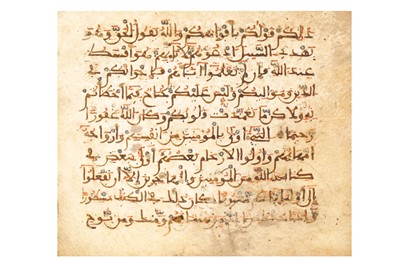 ذلكم قولكم بأفواهكم والله يقول الحق وهو
يهدي السبيل ادعوهم لآبائهم هو أقسط
عند الله فإن لم تعلموا آباءهم فإخوانكم في
الدين ومواليكم وليس عليكم جناح فيما أخطأتم
به ولكن ما تعمدت قلوبكم وكان الله غفورا
رحيما النبي أولى بالمؤمنين من أنفسهم وأزواجه
أمهاتهم وأولوا الأرحام بعضهم أولى ببعض في
كتاب الله من المؤمنين والمهاجرين إلا أن تفعلوا
إلى أوليائكم معروفا كان ذلك في الكتاب مسطورا
وإذ أخذنا من النبيين ميثاقهم ومنك ومن نوح